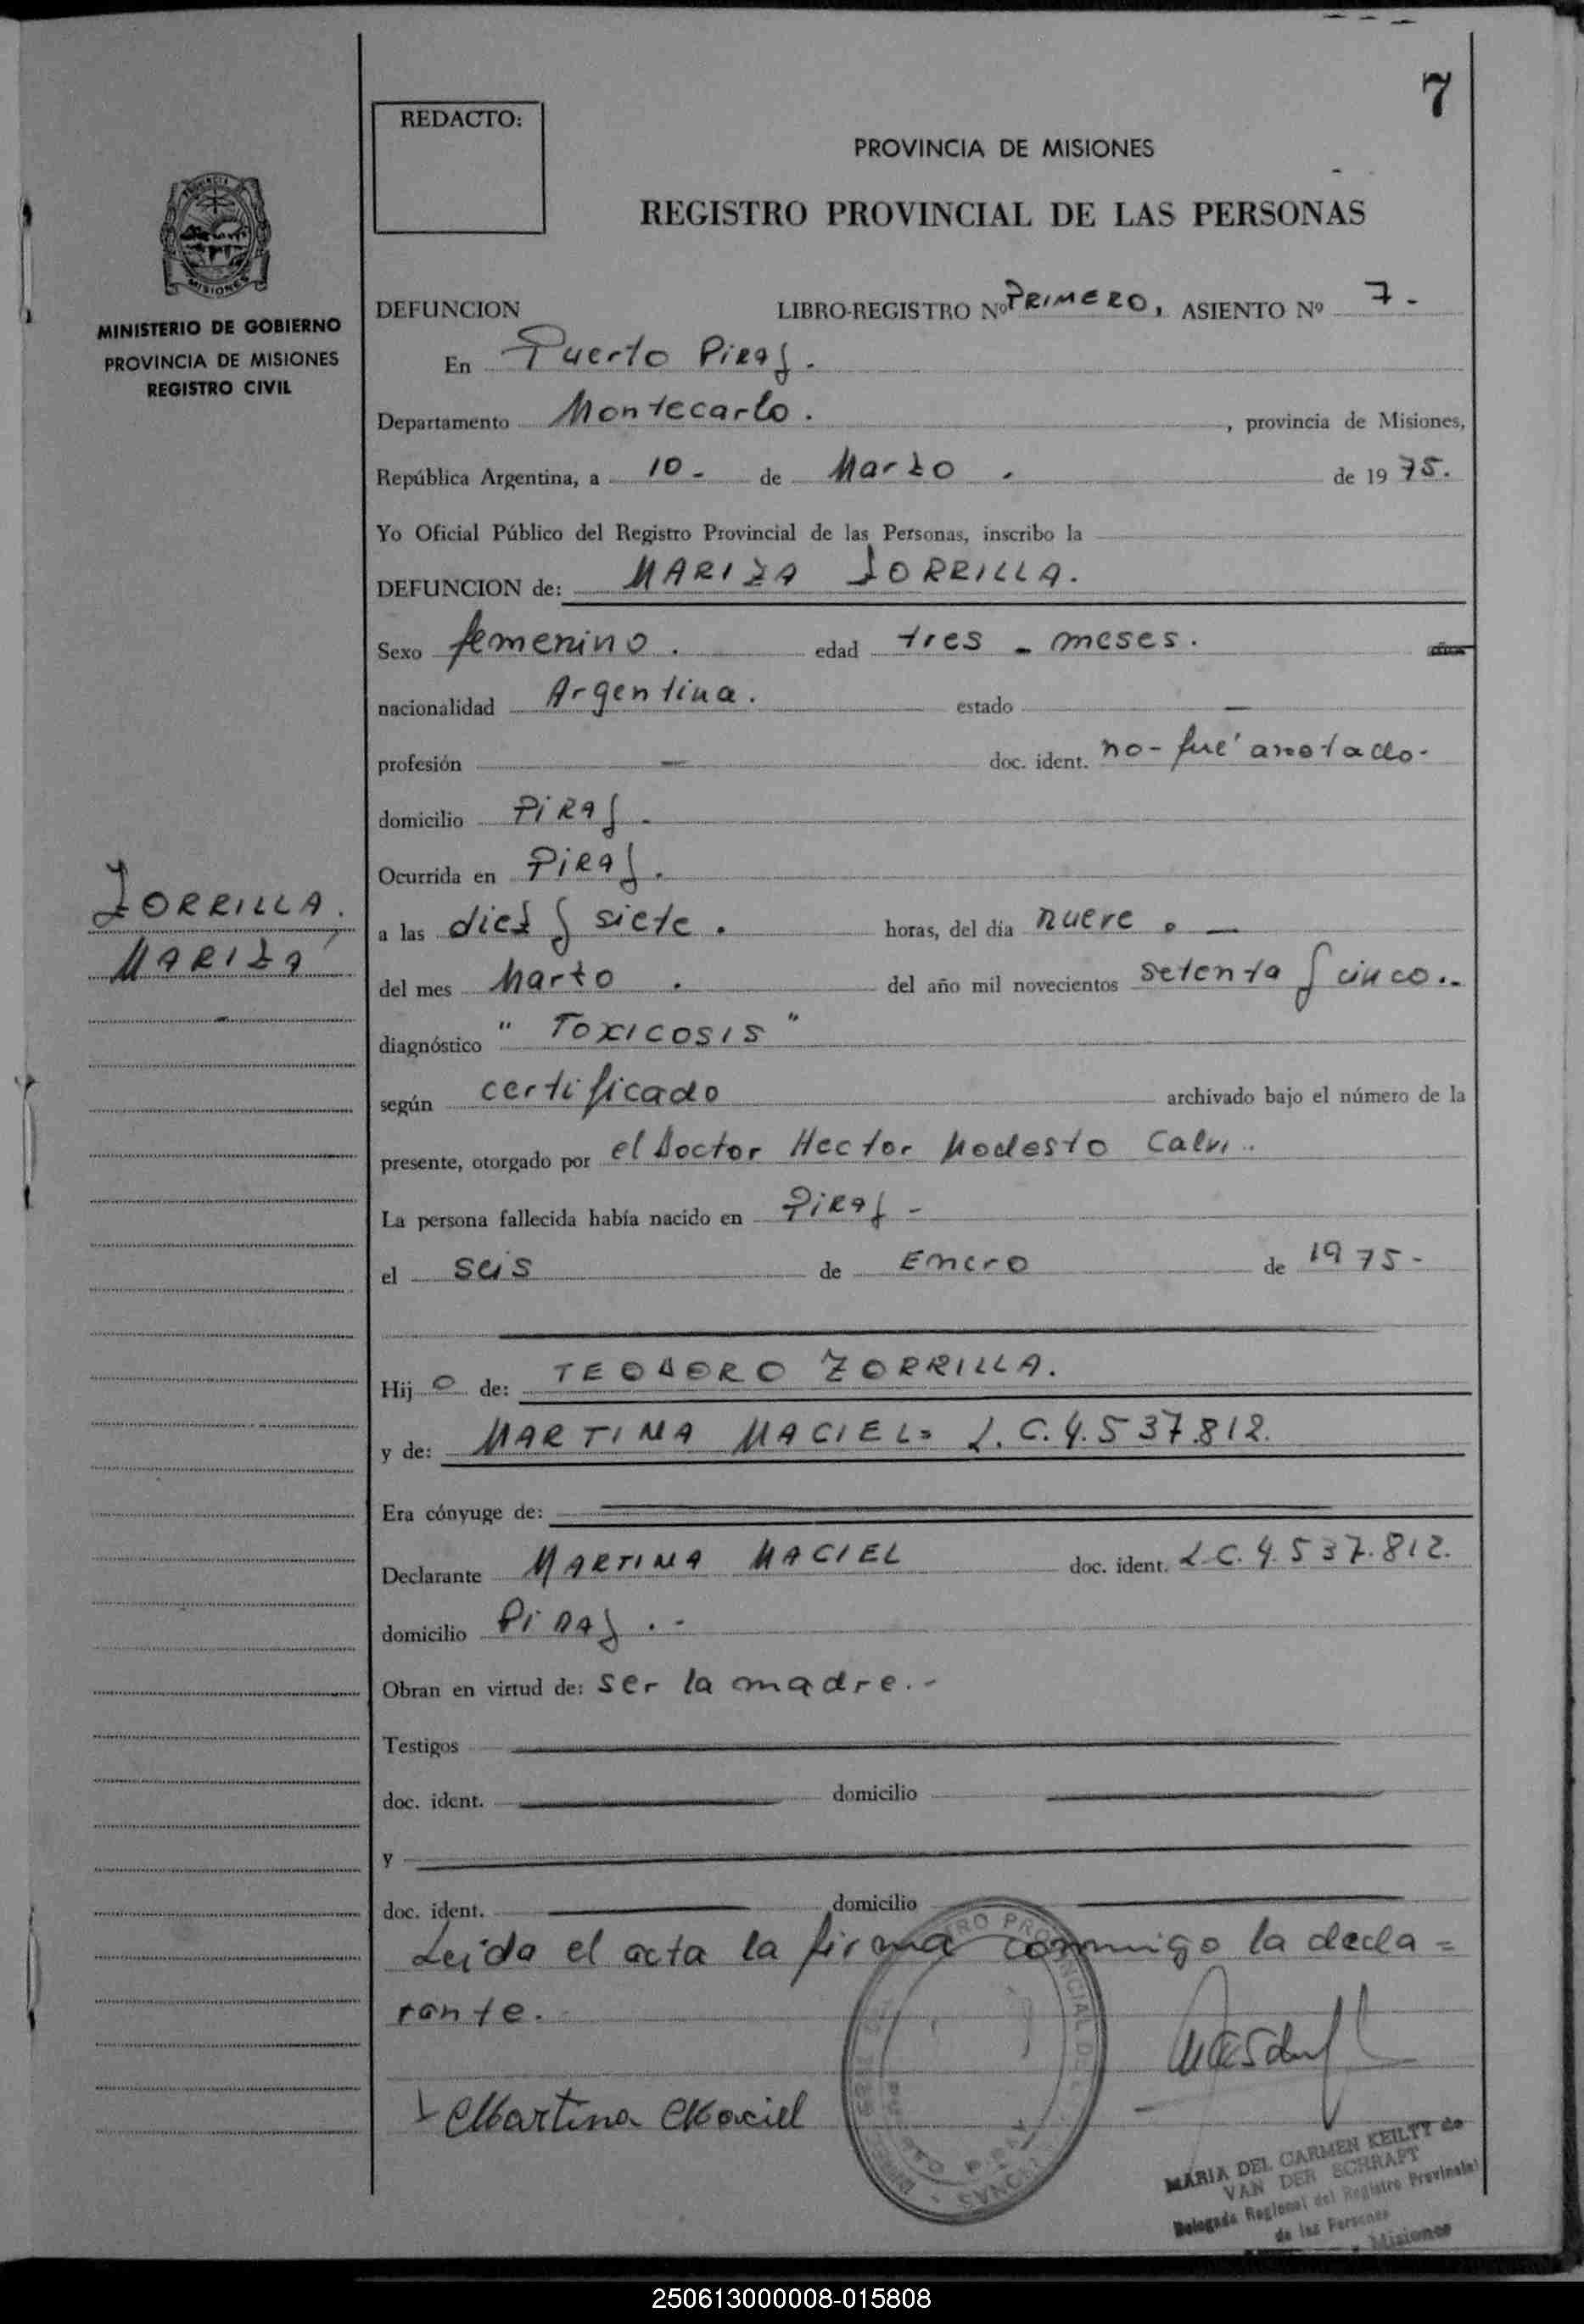 7
REDACTO:
PROVINCIA DE MISIONES
REGISTRO PROVINCIAL DE LAS PERSONAS
MISIONES
MINISTERIO DE GOBIERNO
PROVINCIA DE MISIONES
REGISTRO CIVIL
DEFUNCION LIBRO-REGISTRO Nº PRIMERO, ASIENTO Nº 7.-
En Puerto Piray.
Departamento Montecarlo. , provincia de Misiones,
República Argentina, a 10- de Marzo . de 19 75.
Yo Oficial Público del Registro Provincial de las Personas, inscribo la
DEFUNCION de: MARIZA ZORRILLA.
Sexo femenino. edad tres - meses. años
nacionalidad Argentina. estado —
profesión — doc. ident. no-fué anotado-
domicilio PiRay -
Ocurrida en PiRay.
ZORRILLA.
MARIZA
a las diez y siete. horas, del día nueve . —
del mes Marzo . del año mil novecientos setenta y cinco..-
diagnóstico " TOXICOSIS "
según certificado archivado bajo el número de la
presente, otorgado por el Doctor Hector Modesto Calvi..
La persona fallecida había nacido en PiRay -
el seis de Enero de 1975-
Hij o de: TEODORO ZORRILLA.
y de: MARTINA MACIEL= L.C.4.537.812.
Era cónyuge de:
Declarante MARTINA MACIEL doc. ident. L.C.4.537.812.
domicilio PiRAy . -
Obran en virtud de: ser la madre.-
Testigos
doc. ident. domicilio
y
doc. ident. domicilio
Leida el acta la firma conmigo la decla=
rante.
Martina Maciel
MARIA DEL CARMEN KEILTY de
VAN DER SCHRAFT
Delegada Regional del Registro Provincial
de las Personas
Misiones
250613000008-015808